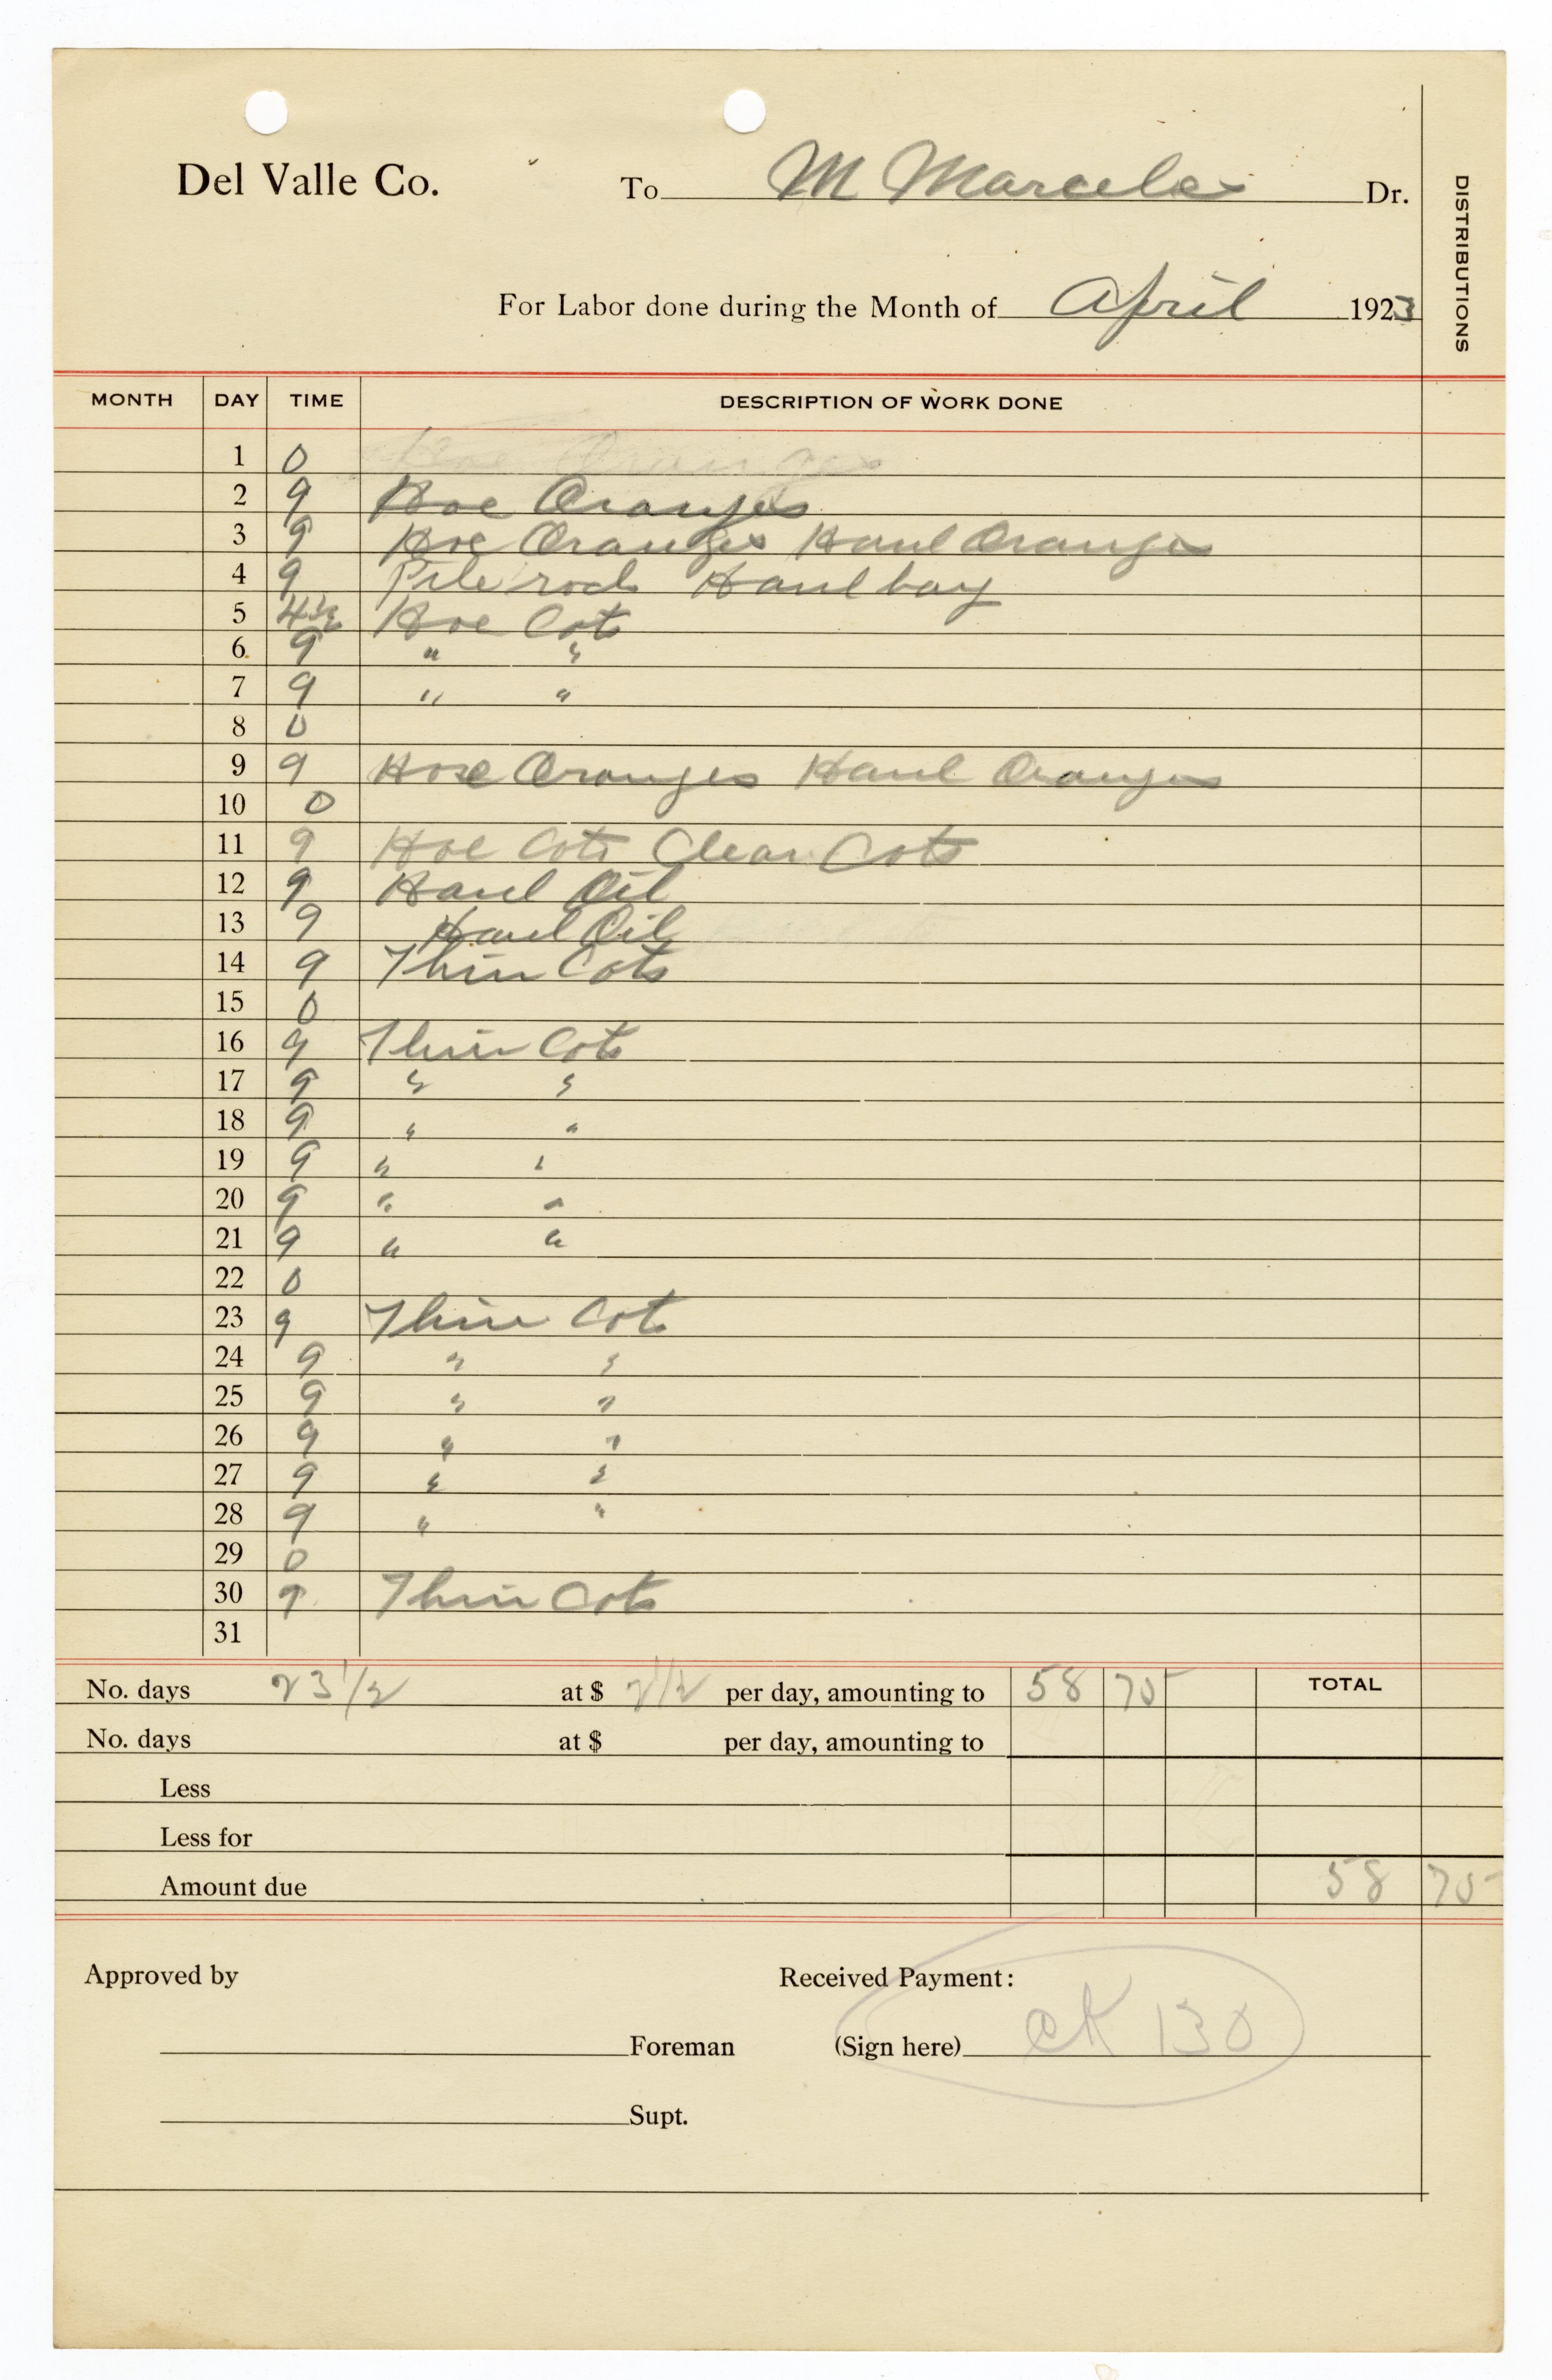 Del Valle Co. To M Marceles Dr.
DISTRIBUTIONS
For Labor done during the Month of April 1923
MONTH DAY TIME DESCRIPTION OF WORK DONE
1 0 Hoe Oranges
2 9 Hoe Oranges
3 9 Hoe Oranges Haul Oranges
4 9 Pile rock Haul hay
5 4½ Hoe Cots
6 9 " "
7 9 " "
8 0
9 9 Hoe Oranges Haul Oranges
10 0
11 9 Hoe Cots Clear Cots
12 9 Haul Oil
13 9 Haul Oil
14 9 Thin Cots
15 0
16 9 Thin Cots
17 9 " "
18 9 " "
19 9 " "
20 9 " "
21 9 " "
22 0
23 9 Thin Cots
24 9 " "
25 9 " "
26 9 " "
27 9 " "
28 9 " "
29 0
30 9 Thin Cots
31
No. days 23 1/2 at $ 2 1/2 per day, amounting to 58 75 TOTAL
No. days at $ per day, amounting to
Less
Less for
Amount due 58 75
Approved by Received Payment:
Foreman (Sign here) CK 130
Supt.